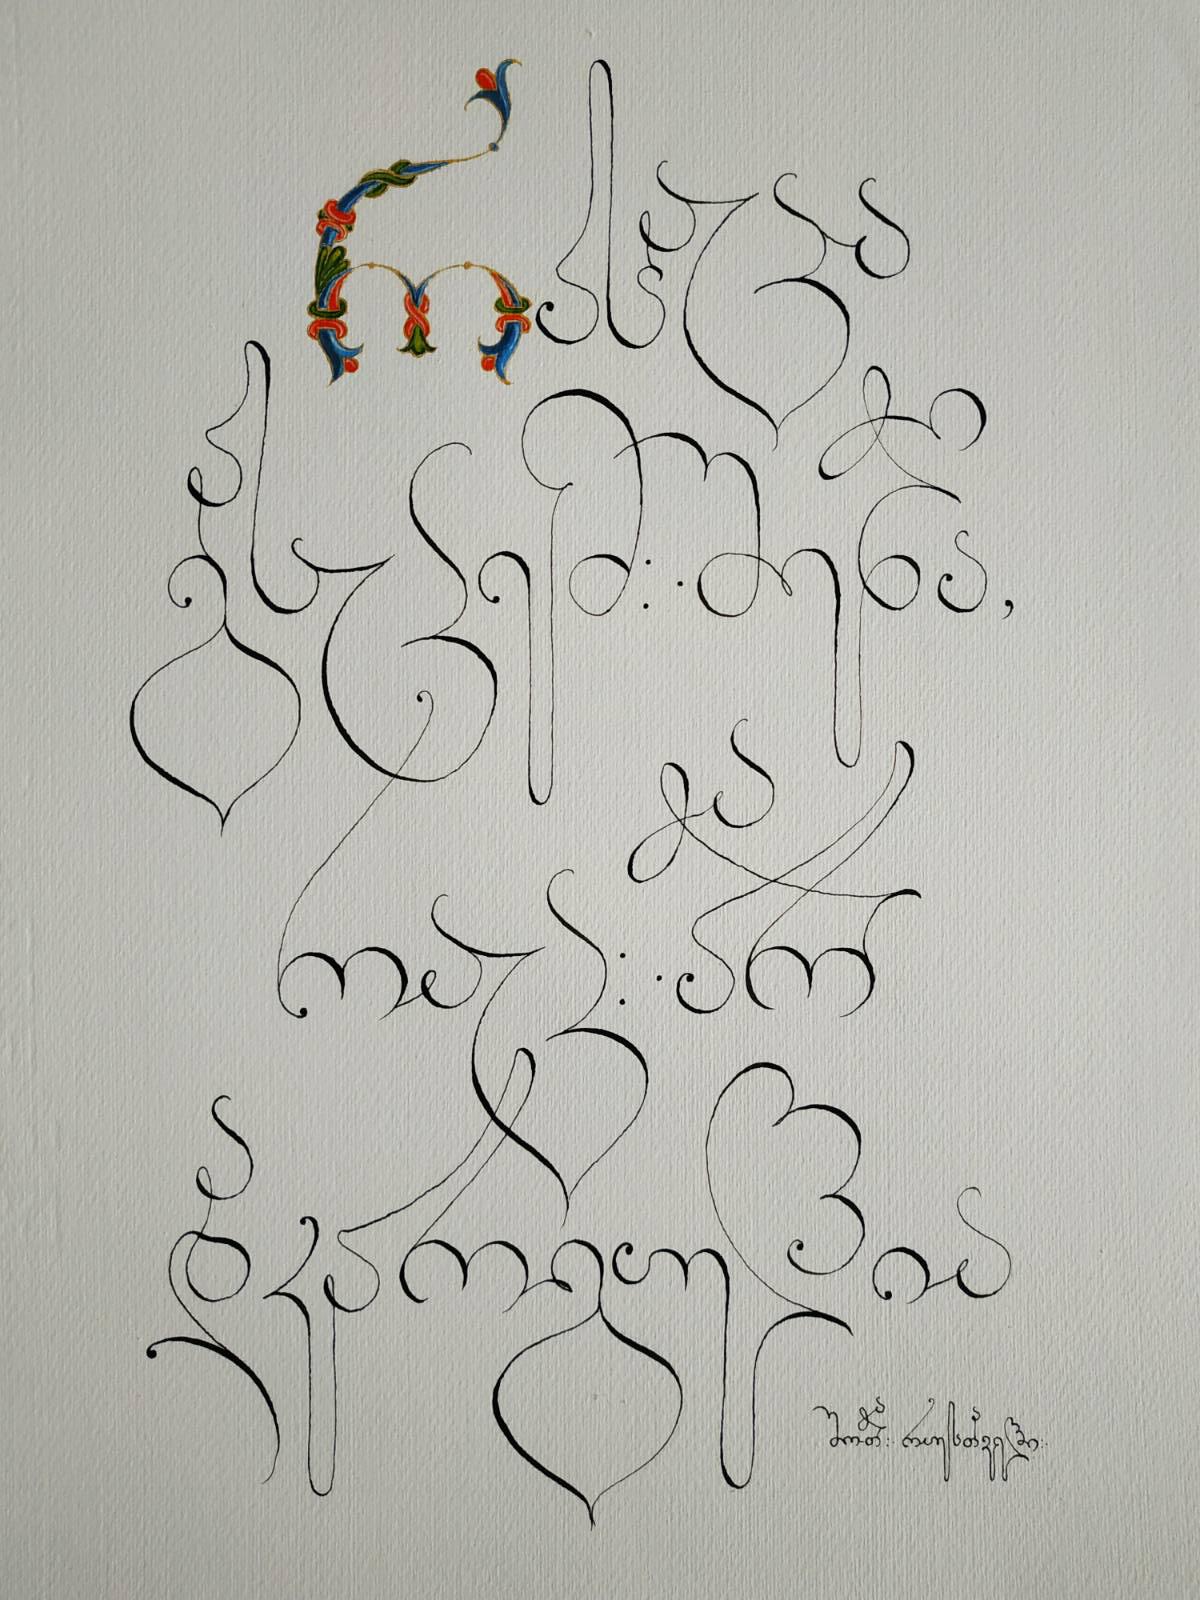 რასაცა
გასცემ჻ შენია,
რაც჻ არა
დაკარგულია
შოთა჻ რუსთაველი჻